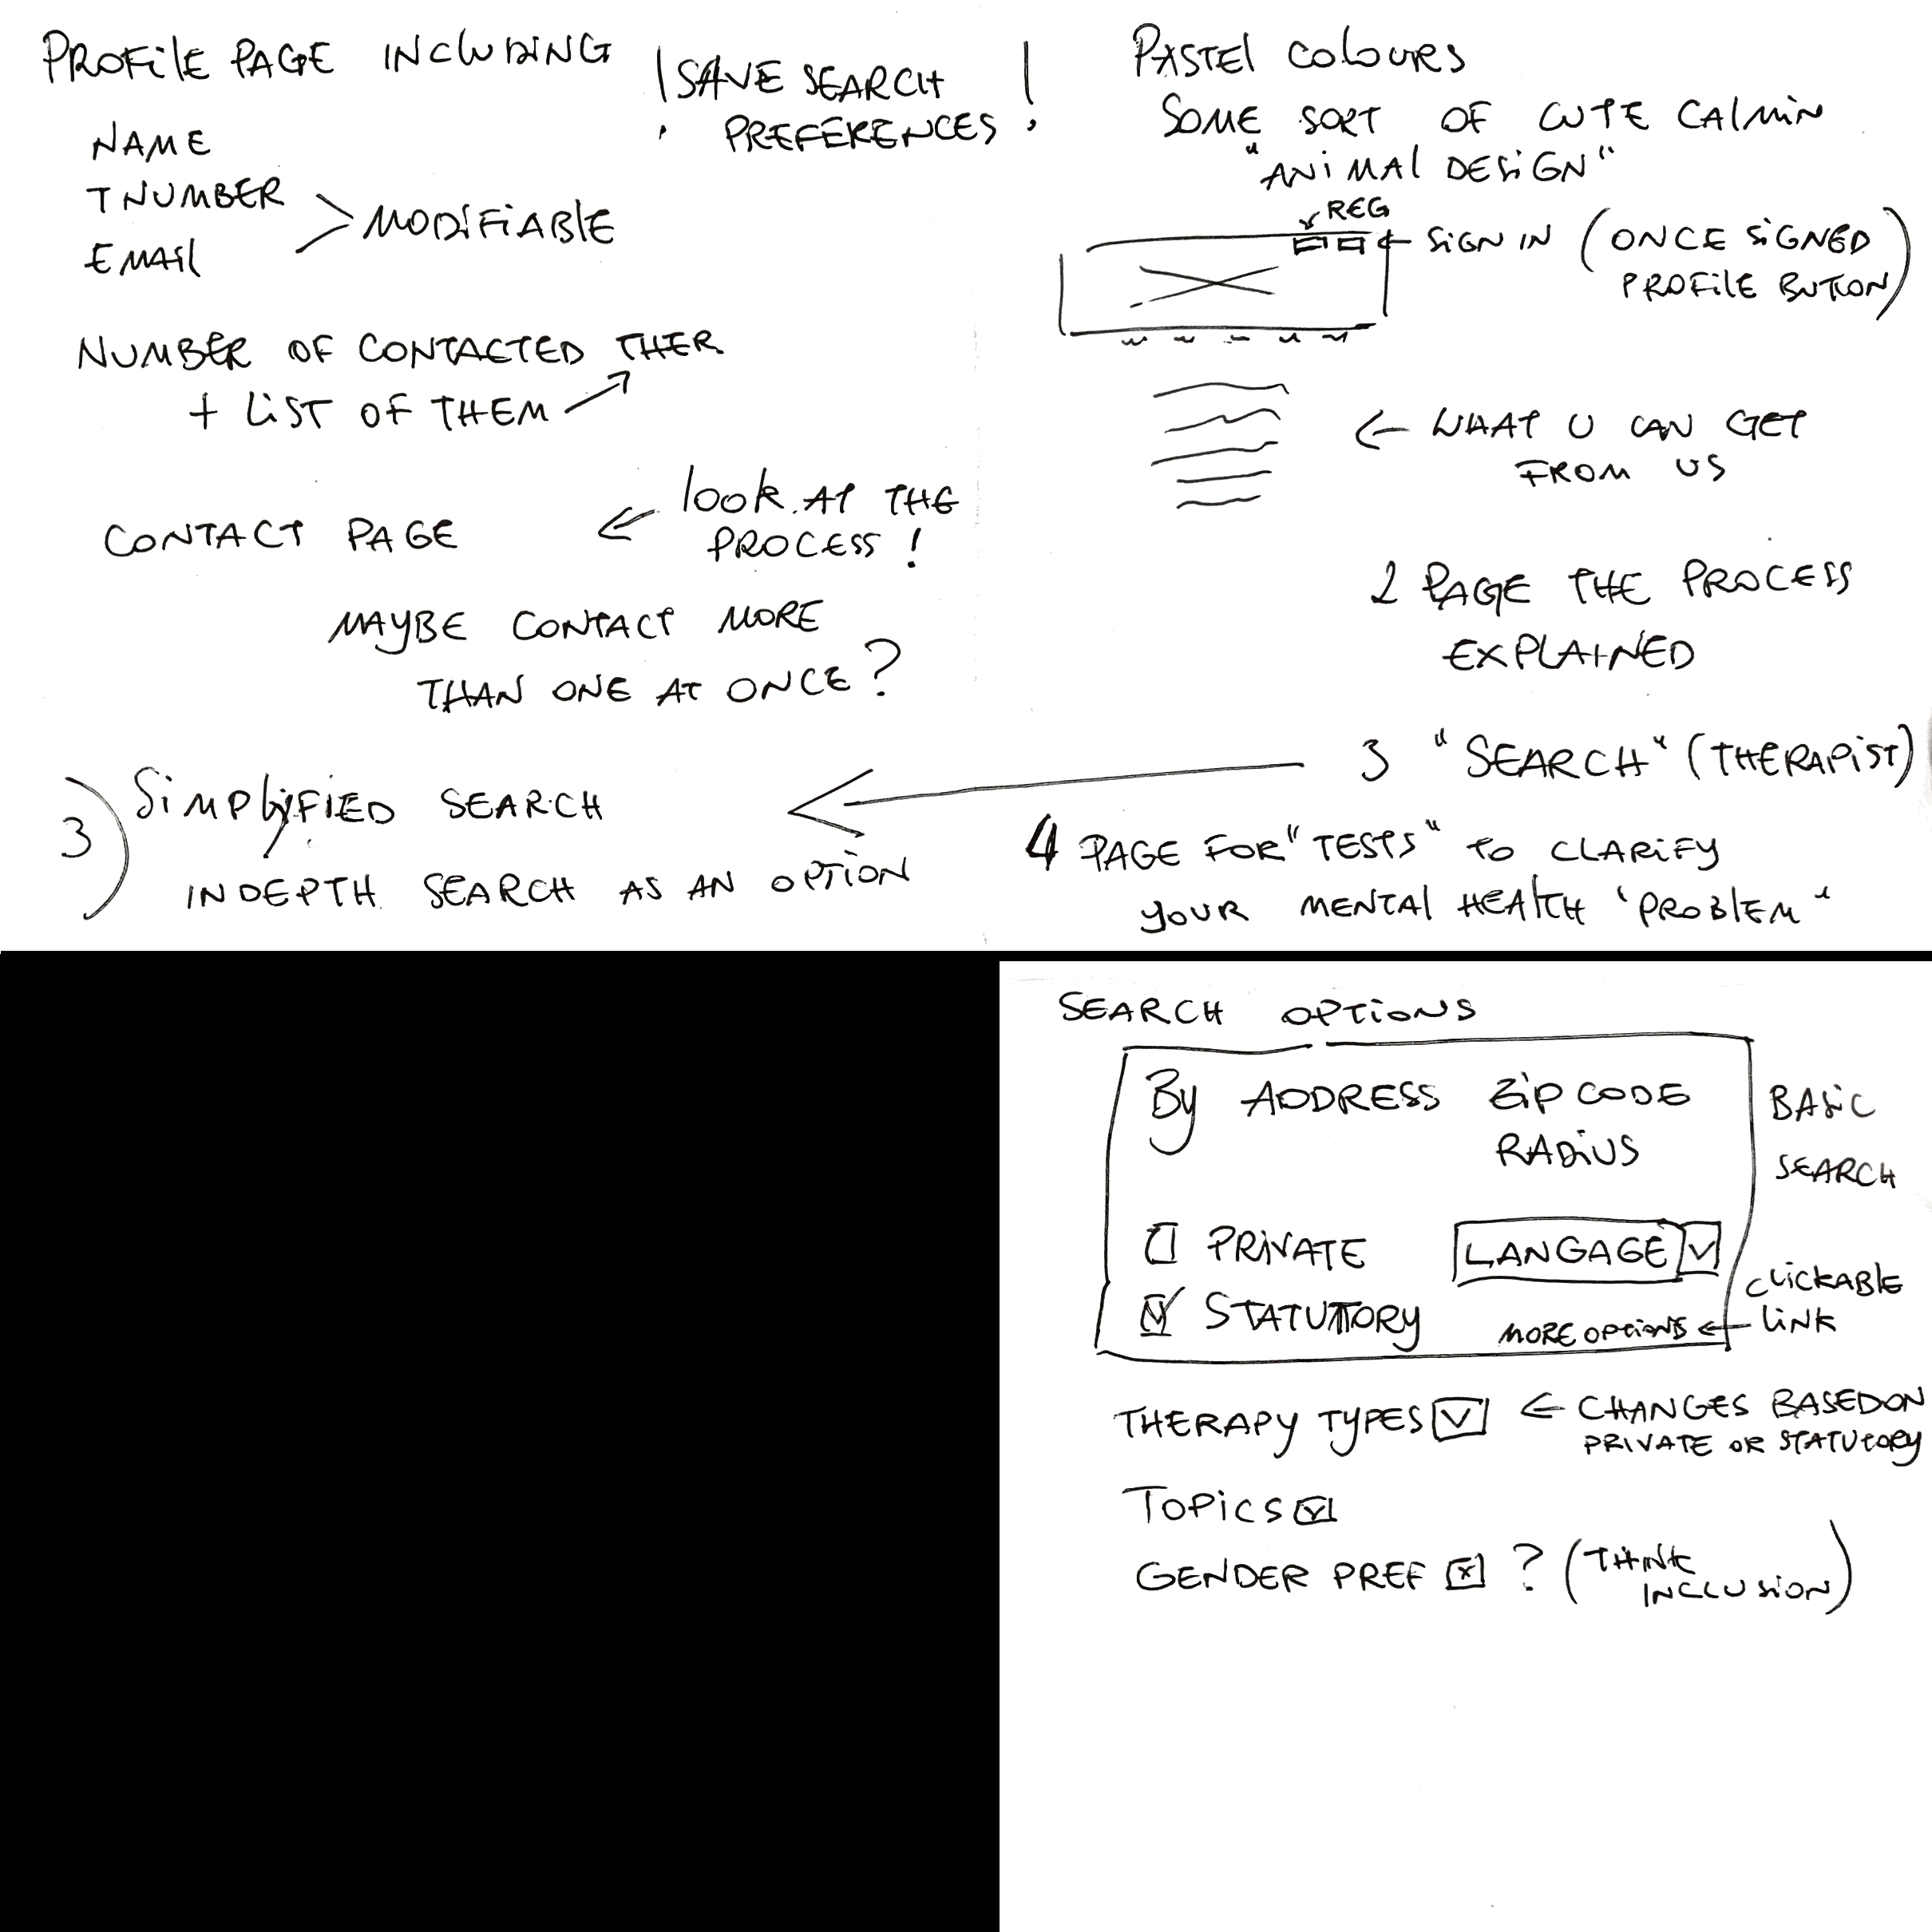 PROFILE PAGE INCLUDING
NAME
TNUMBER
EMAIL
> MODIFIABLE
! SAVE SEARCH
PREFERENCES !
NUMBER OF CONTACTED THER.
+ LIST OF THEM
CONTACT PAGE
← LOOK AT THE
PROCESS!
MAYBE CONTACT MORE
THAN ONE AT ONCE?
3) SIMPLIFIED SEARCH
INDEPTH SEARCH AS AN OPTION
PASTEL COLOURS
SOME SORT OF CUTE CALMIN
"ANIMAL DESIGN"
REG
← SIGN IN (ONCE SIGNED
PROFILE BUTTON)
← WHAT U CAN GET
FROM US
2 PAGE THE PROCESS
EXPLAINED
3 "SEARCH" (THERAPIST)
4 PAGE FOR "TESTS" TO CLARIFY
YOUR MENTAL HEALTH 'PROBLEM"
SEARCH OPTIONS
By ADDRESS ZIP CODE
RADIUS
BASIC
SEARCH
PRIVATE LANGAGE
STATUTTORY MORE OPTIONS ←
CLICKABLE
LINK
THERAPY TYPES ← CHANGES BASED ON
PRIVATE OR STATUTORY
TOPICS
GENDER PREF ? (THINK
INCLUSION)